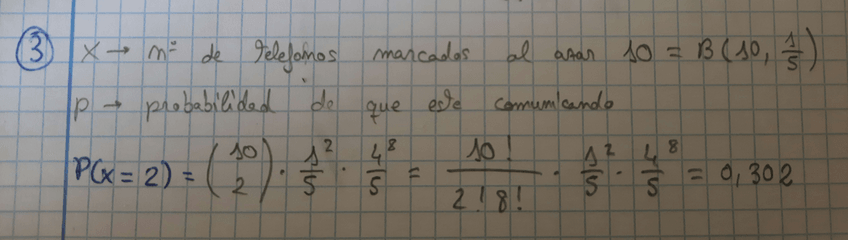 ③ X → nº de telefonos marcados al azar 10 = B(10, 1/5)
p → probabilidad de que este comunicando
P(x = 2) = (10 2) · 1²/5 · 4⁸/5 = 10!/2!8! · 1²/5 · 4⁸/5 = 0,302